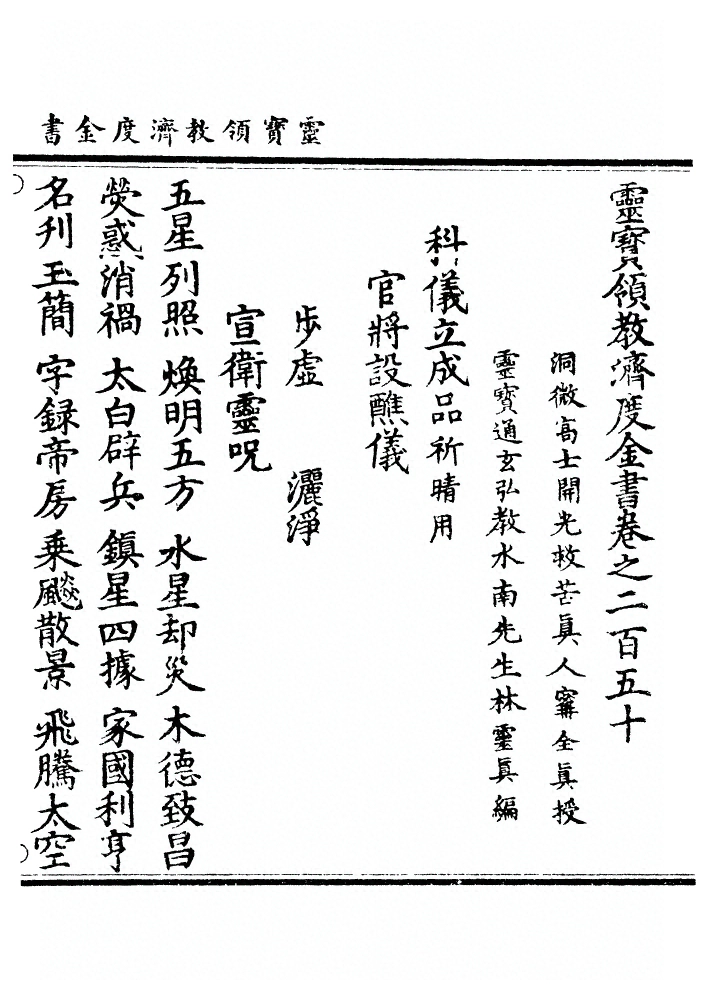 靈寶領教濟度金書
靈寶領教濟度金書卷之二百五十
洞微高士開光救苦眞人寗全眞授
靈寶通玄弘教水南先生林靈眞編
科儀立成品祈晴用
官將設醮儀
步虛 灑淨
宣衛靈呪
五星列照 煥明五方 水星却災 木德致昌
熒惑消禍 太白辟兵 鎮星四據 家國利亨
名刋玉簡 字録帝房 乗飈散景 飛騰太空